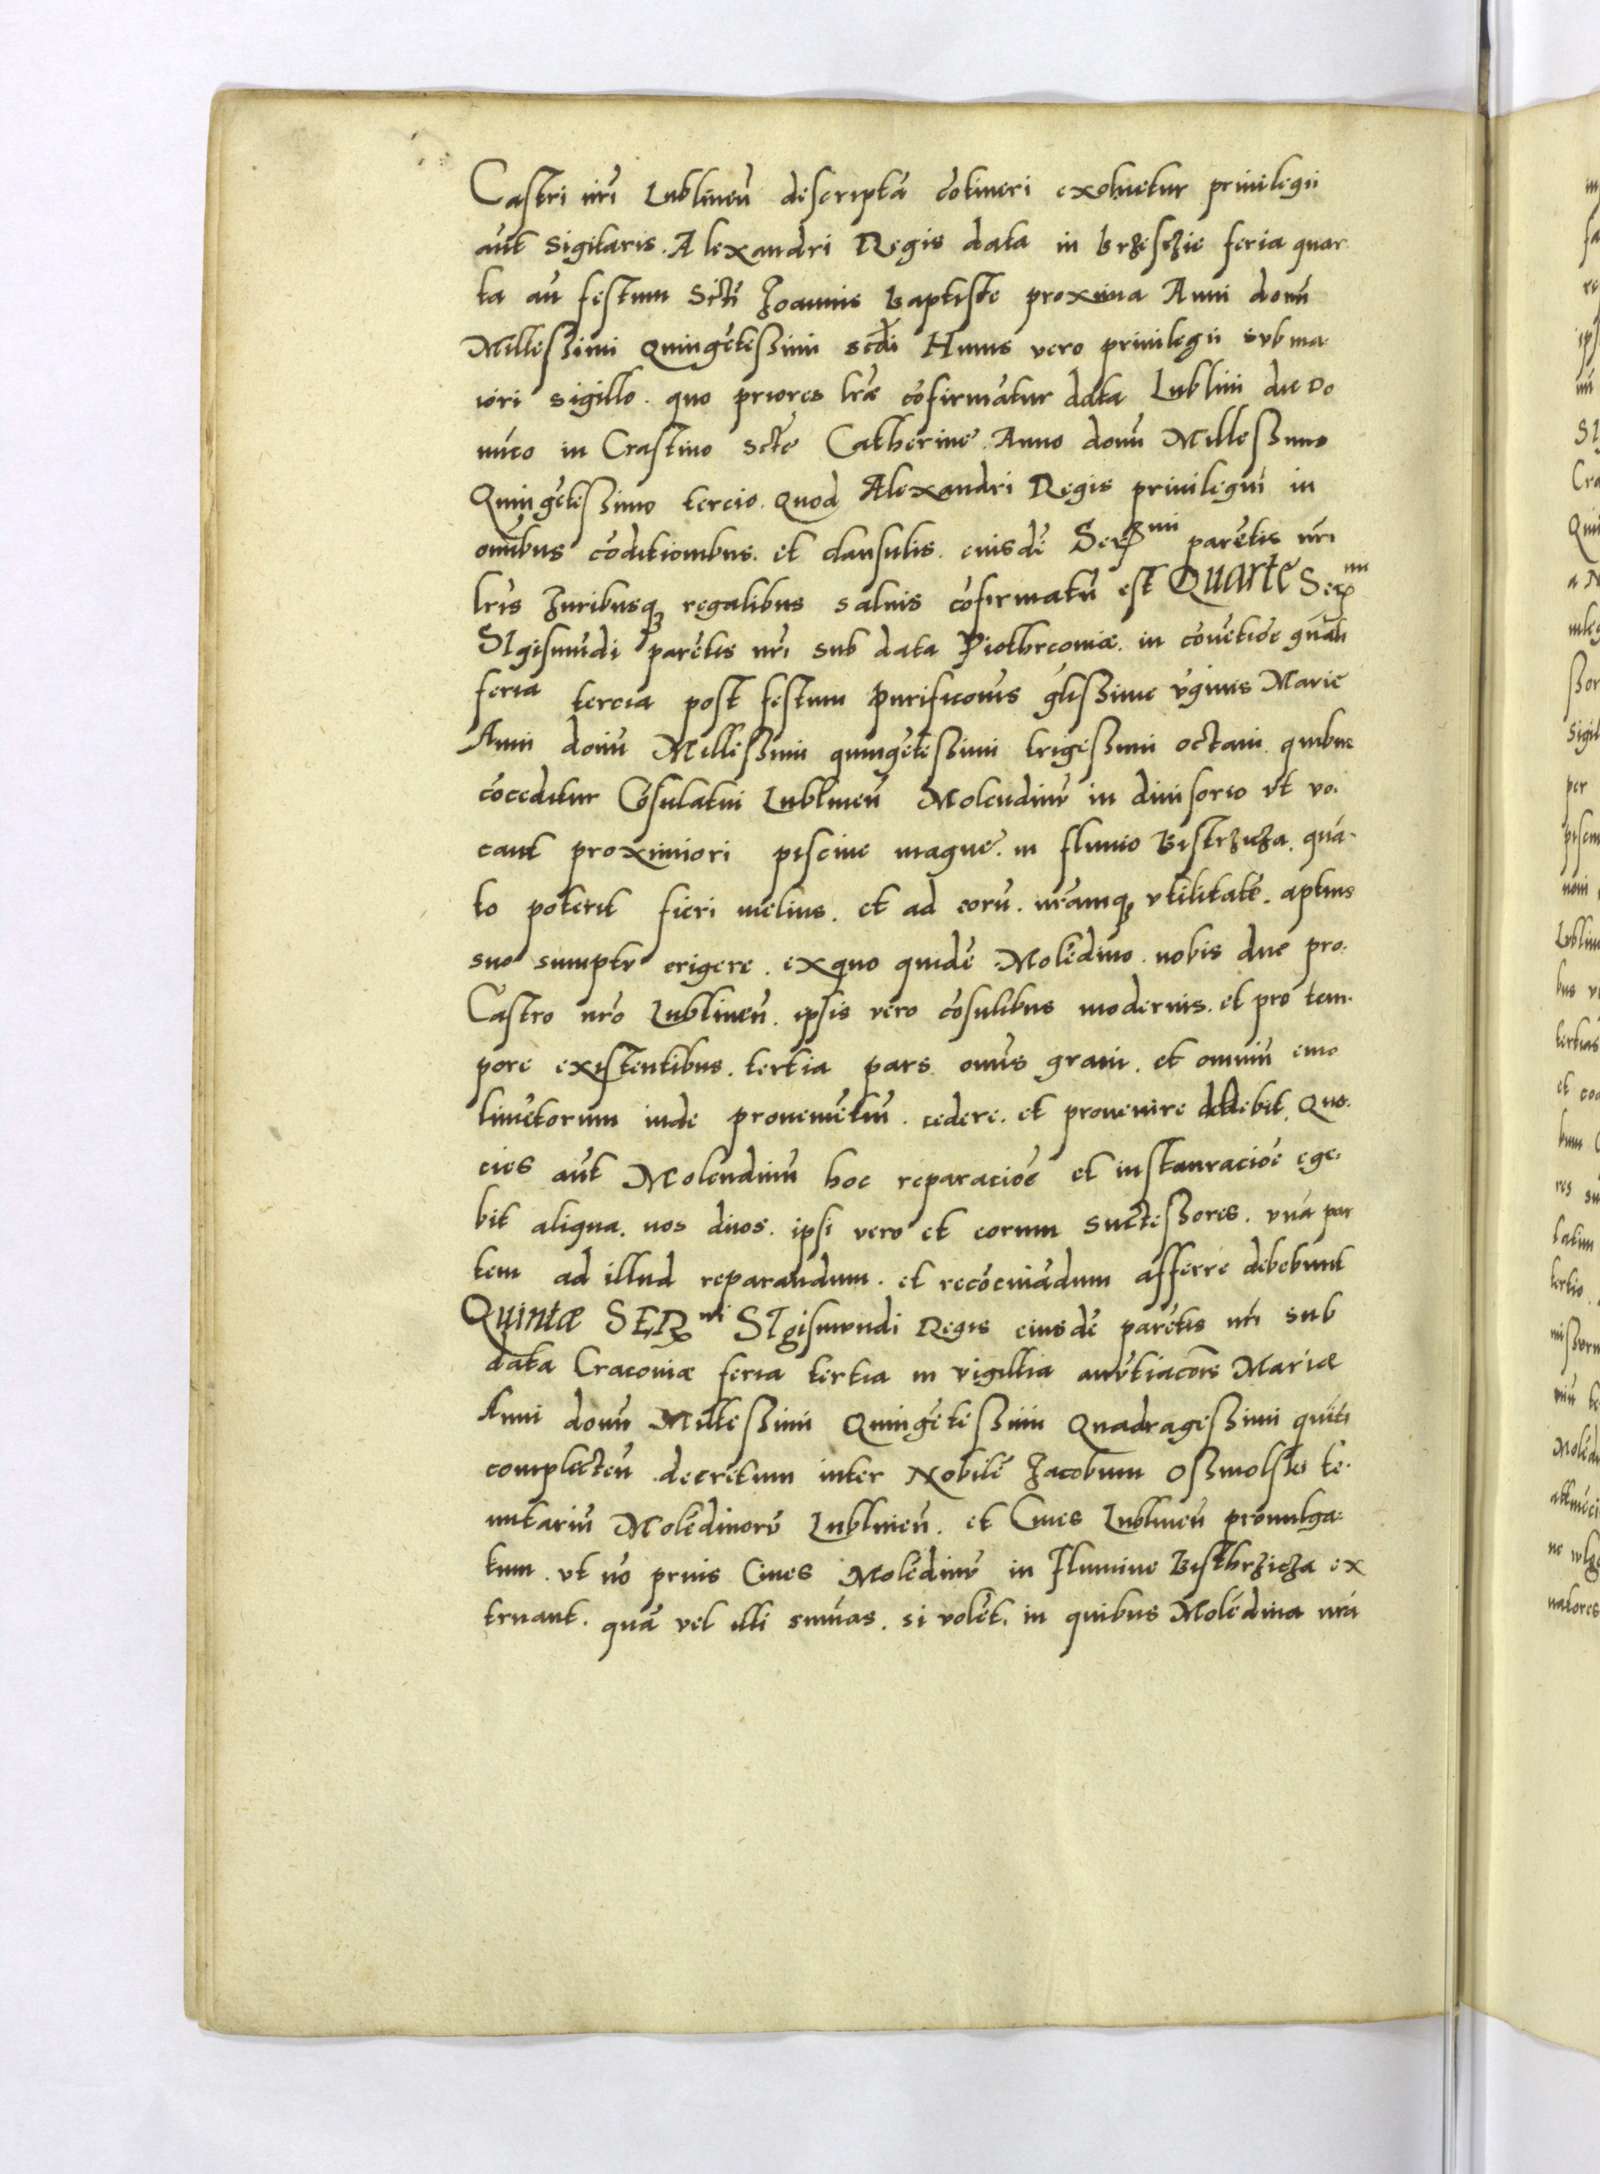 Castri nr̃i Lublineñ descriptã cõtineri exoluetur priuilegii
aũt sigitaris. Alexandri Regis data in brzesczie feria quar
ta añ festum Scti Joannis Baptiste proxima Anni domĩ
Millessimi Quingẽtessimi scdi Huius vero priuilegii sub ma
iori sigillo. quo priores lr̃æ cõfirmãtur data Lublini die Do
mĩco in Crastino Scte Catherine. Anno domĩ Millessimo
Quingẽtessimo tercio. Quod Alexandri Regis priuilegiũ in
omĩbus cõditionibus. et clausulis. eiusdẽ Serᵐⁱ parẽtis nr̃i
lr̃is Juribusq; regalibus saluis cõfirmatũ est Quarte Serᵐⁱ
SIgismũdi parẽtis nr̃i sub data Piothrcouiæ. in cõuẽtiõe gñali
feria tercia post festum Purificõnis gl̃issime ṽginis Marie
Anni domĩ Millessimi quingẽtessimi trigessimi octaui. quibus
cõceditur Cõsulatui Lublineñ Molendinũ in diuisorio vt vo.
cant proximiori piscine magne. in fluuio Bistrzicza. quã.
to poterit fieri melius. et ad eorũ. nr̃amq; vtilitatẽ. aptius
suo sumptu erigere. ex quo quidẽ Molẽdino. nobis due pro.
Castro nr̃o Lublineñ. ipsis vero cõsulibus modernis. et pro tem.
pore existentibus. tertia pars om̃is grani. et omniũ emo
limẽtorum inde prouenẽtiũ. cedere. et prouenire debebit. Quo.
cies aũt Molendinũ hoc reparaciõe et instauraciõe ege.
bit aliqua. nos duos. ipsi vero et eorum successores. vnã par
tem ad illud reparandum. et recõcinãdum afferre debebunt
Quintæ SERᵐⁱ SIgismundi Regis eiusdẽ parẽtis nr̃i sub
data Cracouiæ feria tertia in vigillia anũtiacõis Mariæ
Anni domĩ Millessimi Quingẽtessimi Quadragessimi quĩti
complecteñ decretum inter Nobilẽ Jacobum Ossmolski te.
nutariũ Molẽdinorũ Lublineñ. et Ciues Lublineñ promulga.
tum. vt nõ prius Ciues Molẽdinũ in Flumine Bisthrzicza ex
truant. quã vel illi sũmas. si volẽt. in quibus Molẽdina nr̃a